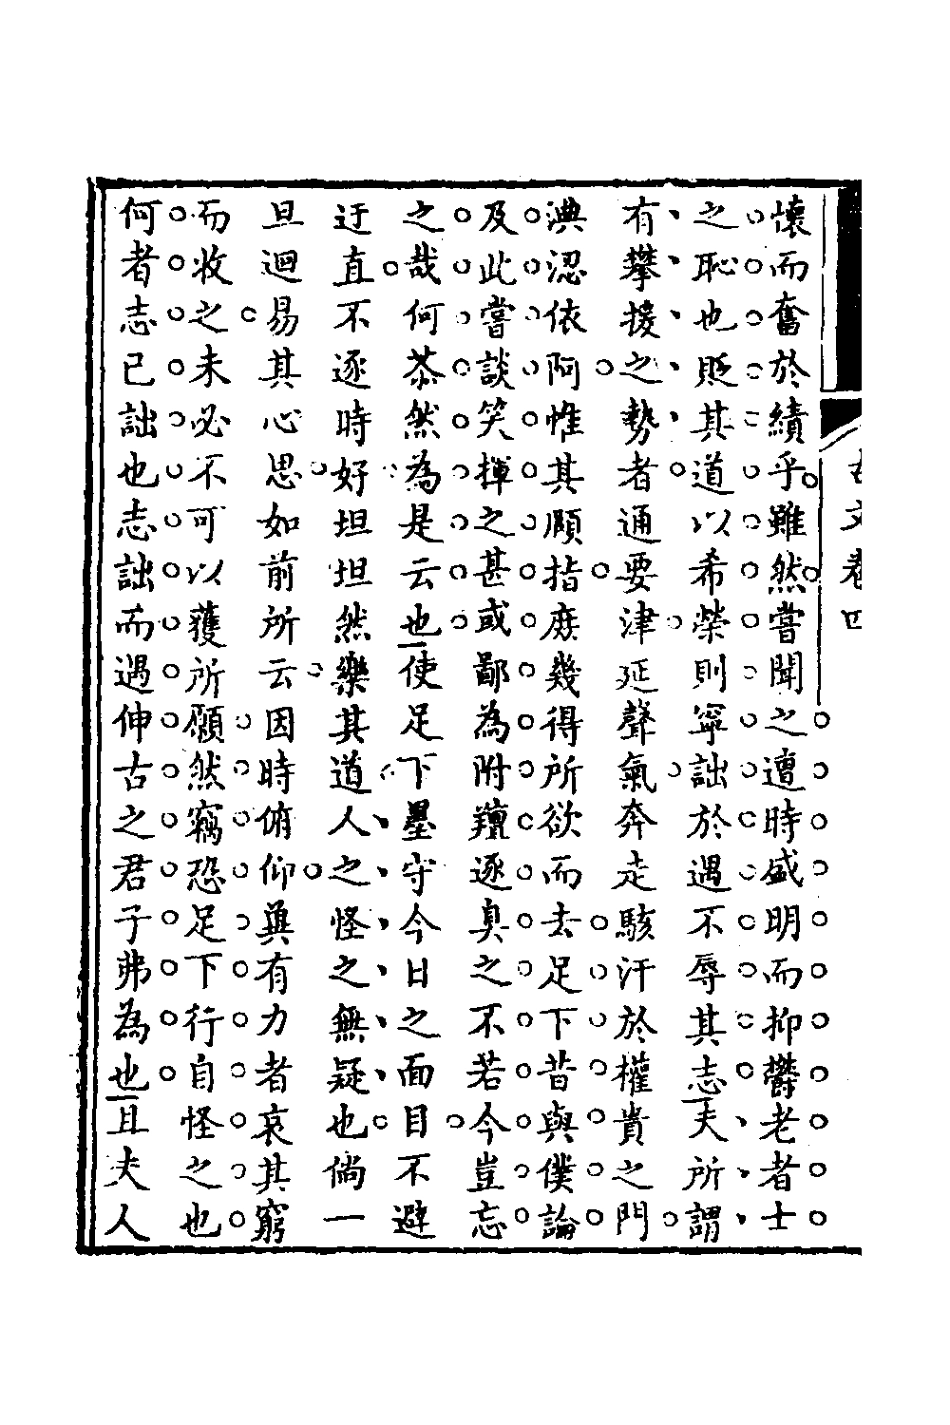 古文卷四
懷而奮於績乎雖然嘗聞之遭時盛明而抑鬱老者士
之恥也貶其道以希榮則寧詘於遇不辱其志夫所謂
有攀援之勢者通要津延聲氣奔走駭汗於權貴之門
淟涊依阿惟其頤指庶幾得所欲而去足下昔與僕論
及此嘗談笑揮之甚或鄙為附羶逐臭之不若今豈忘
之哉何苶然為是云也使足下墨守今日之面目不避
迂直不逐時好坦坦然樂其道人之怪之無疑也倘一
旦迴易其心思如前所云因時俯仰與有力者哀其窮
而收之未必不可以獲所願然竊恐足下行自怪之也
何者志已詘也志詘而遇伸古之君子弗為也且夫人